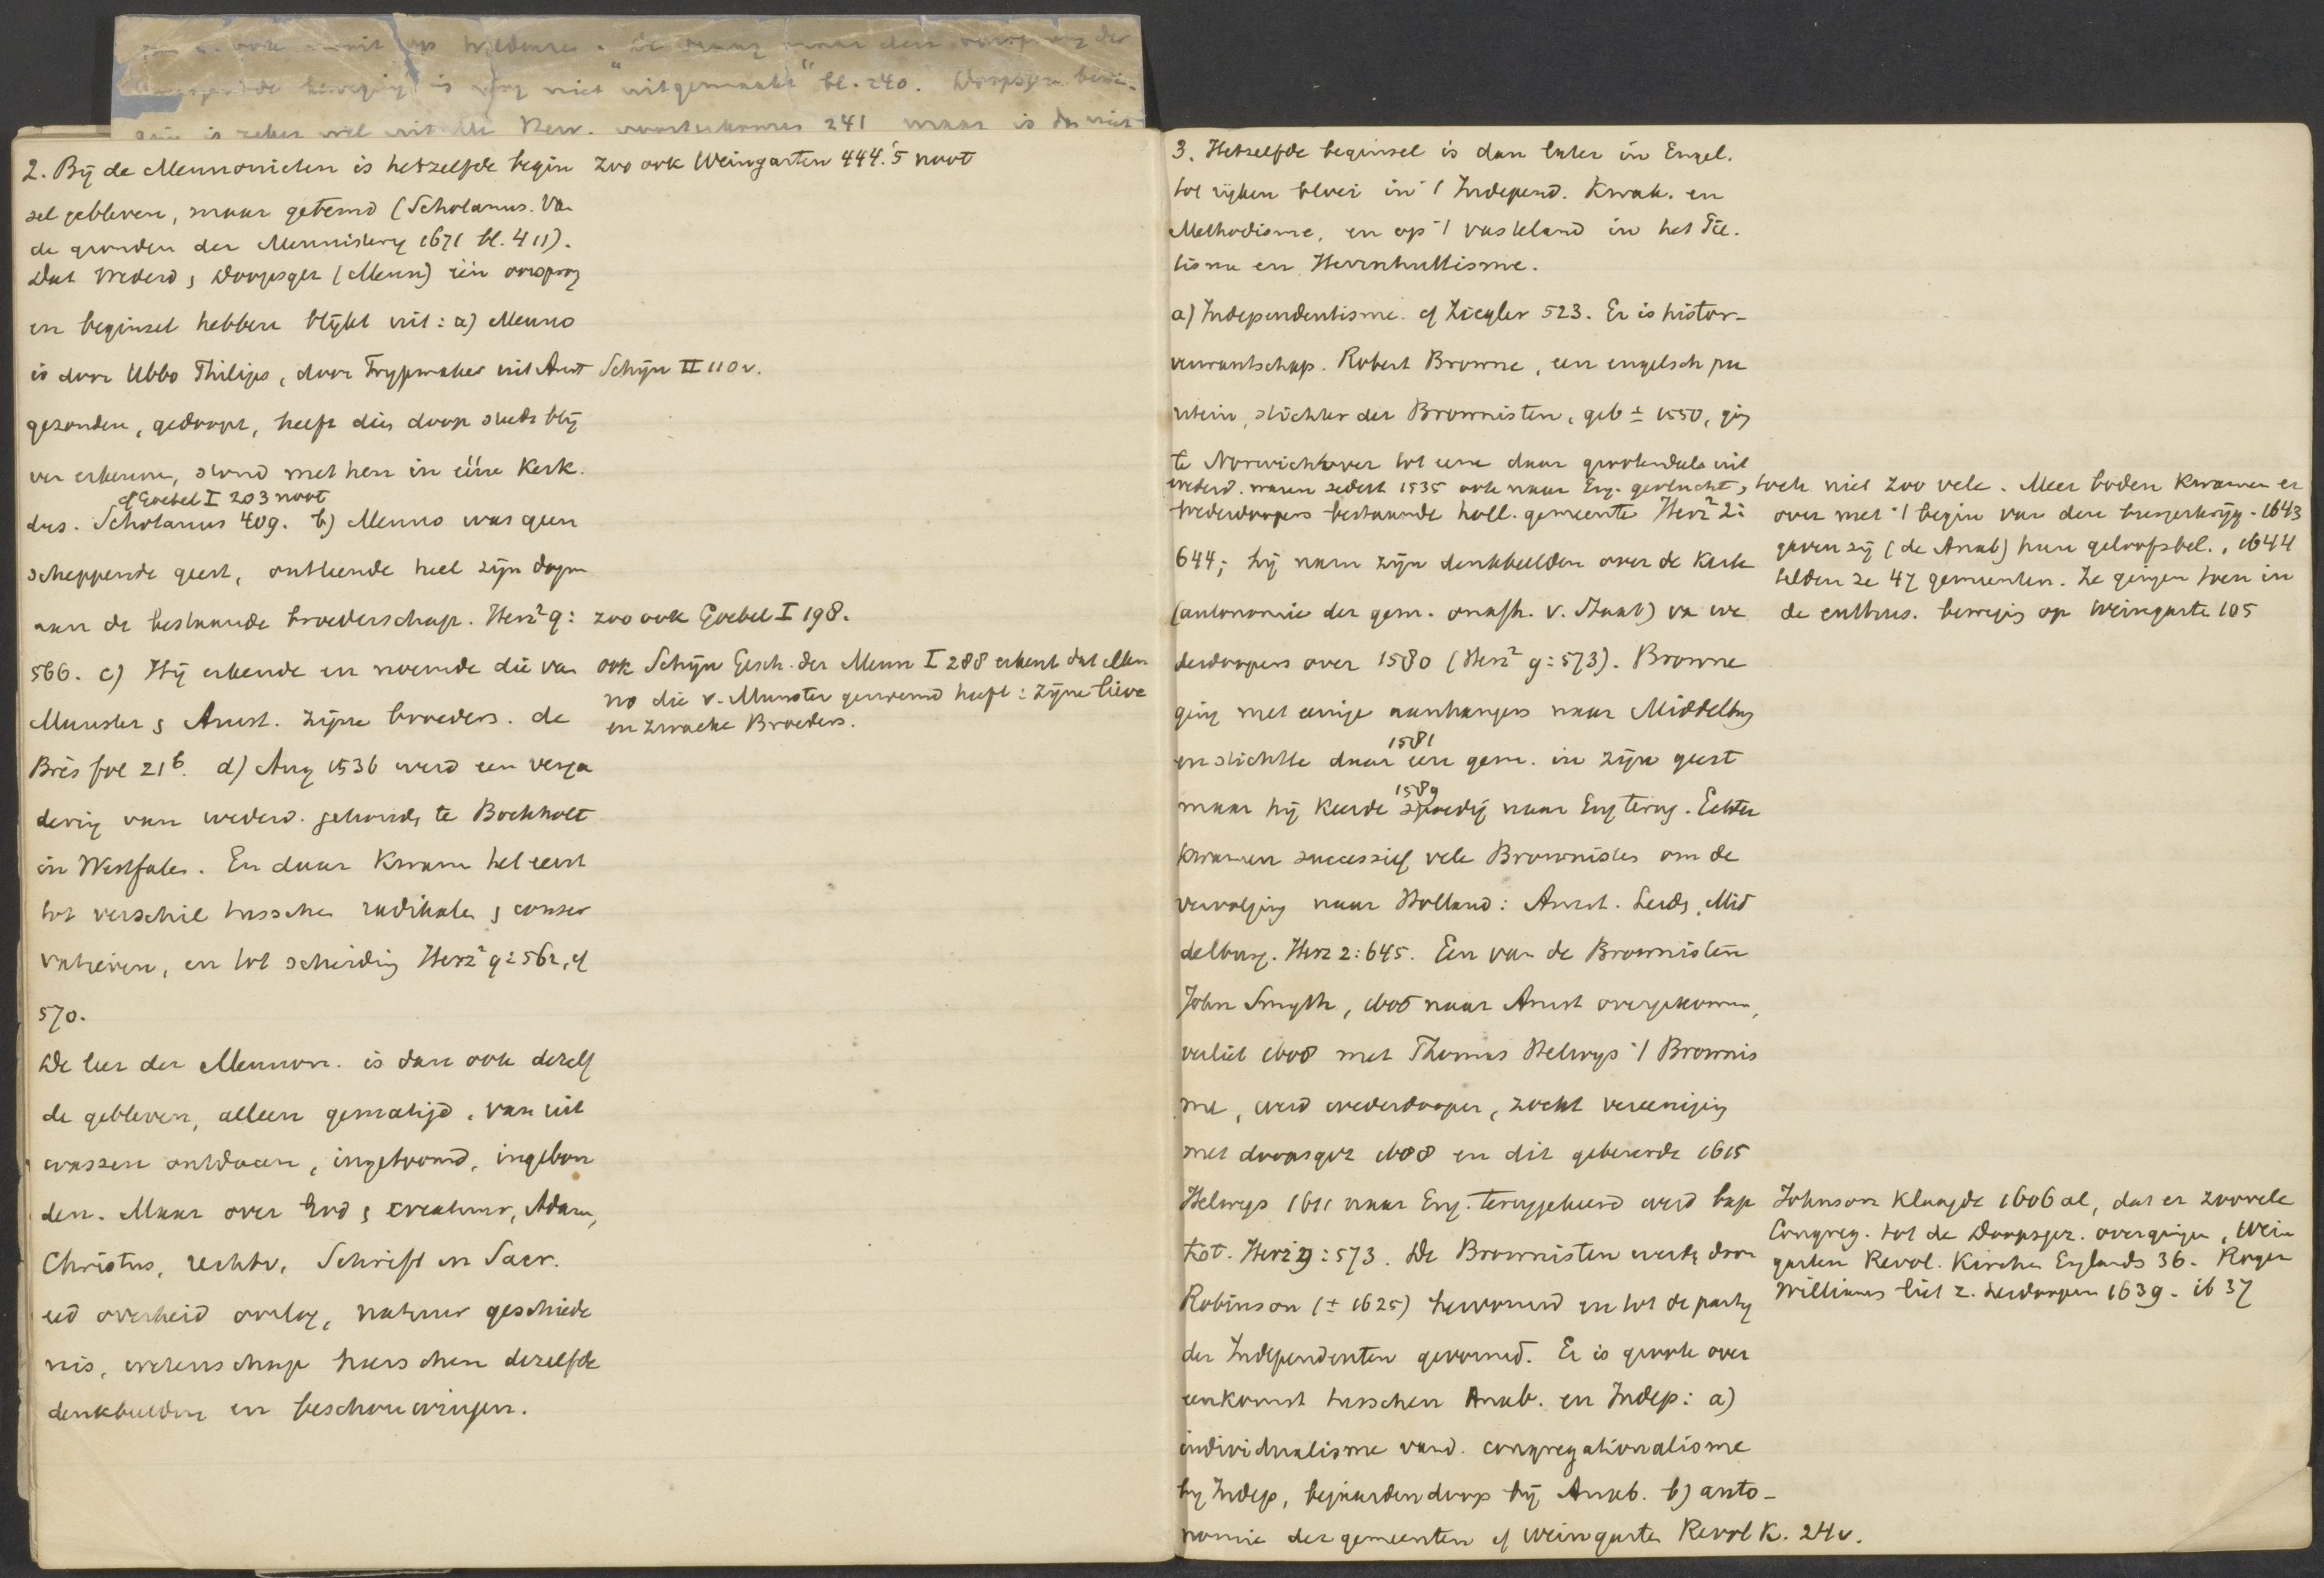 is nog niet "uitgemaakt" bl. 240. Doopsgez. bewe-
is zeker wel uit de Herv. voortgekomen 241 maar is dus niet
2. Bij de Mennonieten is hetzelfde begin
sel gebleven, maar getemd (Schotanus. Van
de gronden der Mennistery 1671 bl. 411).
Dat Wederd & Doopsgez (Menn) één oorsprong
en beginsel hebben blijkt uit: a) Menno
is door Ubbo Philips, door Trypmaker uit Amst
gezonden, gedoopt, heeft dien doop steeds blij
ven erkennen, stond met hen in ééne Kerk.
cf Goebel I 203 noot
dus. Schotanus 409. b) Menno was geen
scheppende geest, ontleende heel zijn dogm
aan de bestaande broederschap. Herz² 9:
566. c) Hij erkende en noemde die van
Munster & Amst. zijne broeders. de
Brès fol 21b. d) Aug 1536 werd een verga
dering van wederd. gehouden te Bockholt
in Westfalen. En daar kwam het eerst
tot verschil tusschen radikalen & conser
vatieven, en tot scheiding Herz² 9:562, cf
570.
De leer der Mennon. is dan ook dezelf
de gebleven, alleen gematigd, van uit
wassen ontdaan, ingetoomd, ingebon
den. Maar over God & creatuur, Adam,
Christus, rechtv, Schrift en Sacr.
eed overheid oorlog, natuur geschiede
nis, wetenschap heerschen dezelfde
denkbeelden en beschouwingen.
zoo ook Weingarten 444.'5 noot
Schijn II 110v.
zoo ook Goebel I 198.
ook Schijn Gesch. der Menn I 288 erkent dat Men
no die v. Munster genoemd heeft: zijne lieve
en zwacke Broeders.
3. Hetzelfde beginsel is dan later in Engel.
tot rijken bloei in 't Independ. Kwak. en
Methodisme, en op 't vasteland in het Pië-
tisme en Herrnhuttisme.
a) Independentisme. cf Ziegler 523. Er is histor-
verwantschap. Robert Browne, een engelsch pu
ritein, stichter der Brownisten, geb ± 1550, ging
te Norwich over tot eene daar grootendeels uit
wederd. waren sedert 1535 ook naar Eng. gevlucht,
wederdoopers bestaande holl. gemeente Herz² 2:
644; hij nam zijn denkbeelden over de Kerk
(autonomie der gem. onafh. v. Staat) van we
derdoopers over 1580 (Herz² 9:573). Browne
ging met eenige aanhangers naar Middelburg
1581
en stichtte daar een gem. in zijn geest
1589
maar hij keerde spoedig naar Eng terug. Echter
kwamen successief vele Brownisten om de
vervolging naar Holland: Amst. Leids, Mid
delburg. Herz 2:645. Een van de Brownisten
John Smyth, 1606 naar Amst overgekomen,
verliet 1608 met Thomas Helwys 't Brownis
me, werd wederdooper, zocht vereeniging
met doopsgez 1608 en dit gebeurde 1615
Helwys 1611 naar Eng. teruggekeerd werd bap
tist. Herz² 9:573. De Brownisten werden door
Robinson († 1625) hervormd en tot de party
der Independenten gevormd. Er is groote over
eenkomst tusschen Anab. en Indep: a)
individualisme vand. congregationalisme
by Indep, bejaardendoop bij Anab. b) auto-
nomie der gemeenten cf Weingarten Revol K. 24v.
toch niet zoo vele. Meer boden kwamen er
over met 't begin van den burgerkrijg. 1643
gaven zij (de Anab) hun geloofsbel., 1644
telden ze 47 gemeenten. Ze gingen toen in
de enthus. beweging op Weingarten 105
Johnson klaagde 1606 al, dat er zoovele
Congreg. tot de Doopsgez. overgingen, Wein
garten Revol. Kirchen Englands 36. Roger
Williams liet z. herdoopen 1639. ib 37